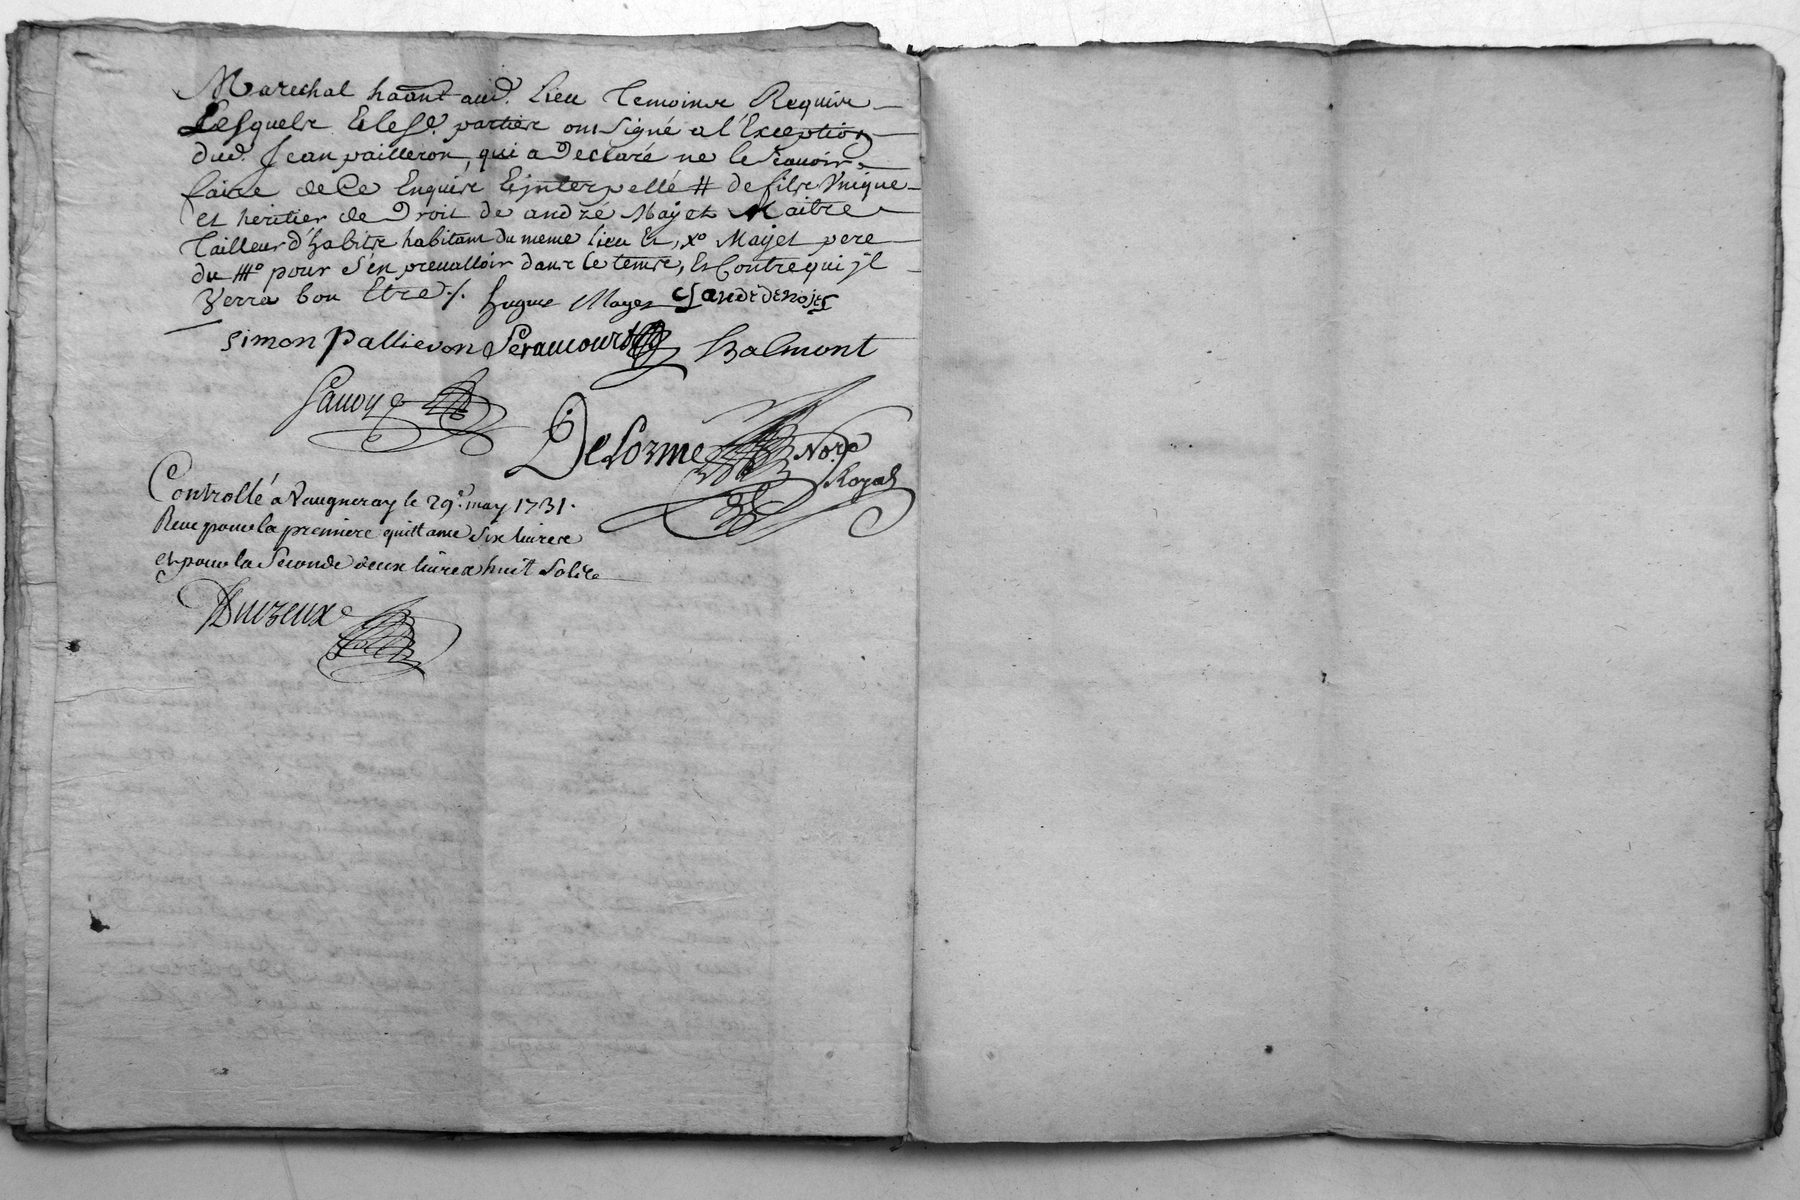 Marechal haânt aud. Lieu Temoins Requis
Lesquels & lesd. parties ont Signé a l'Exception
dud. Jean pailleron, qui a Declaré ne le Scauoir
faire de Ce Enquis & jnterpellé # de fils Vnique
et heritier de Droit de andré Mayet Maitre
Tailleur d'habits habitant du meme lieu Et, xº Mayet pere
du # pour S'en preualloir dans le tems, Et Contre qui jl
Verra bon Etre ./. hugue Mayet
Simon Pallieron Balmont
Sauoye
Delorme Nore.
Royal
Controllé a Vaugneray le 29e. may 1731.
Receu pour la premiere quittance Six liures
et pour la Seconde deux liures huit Sols